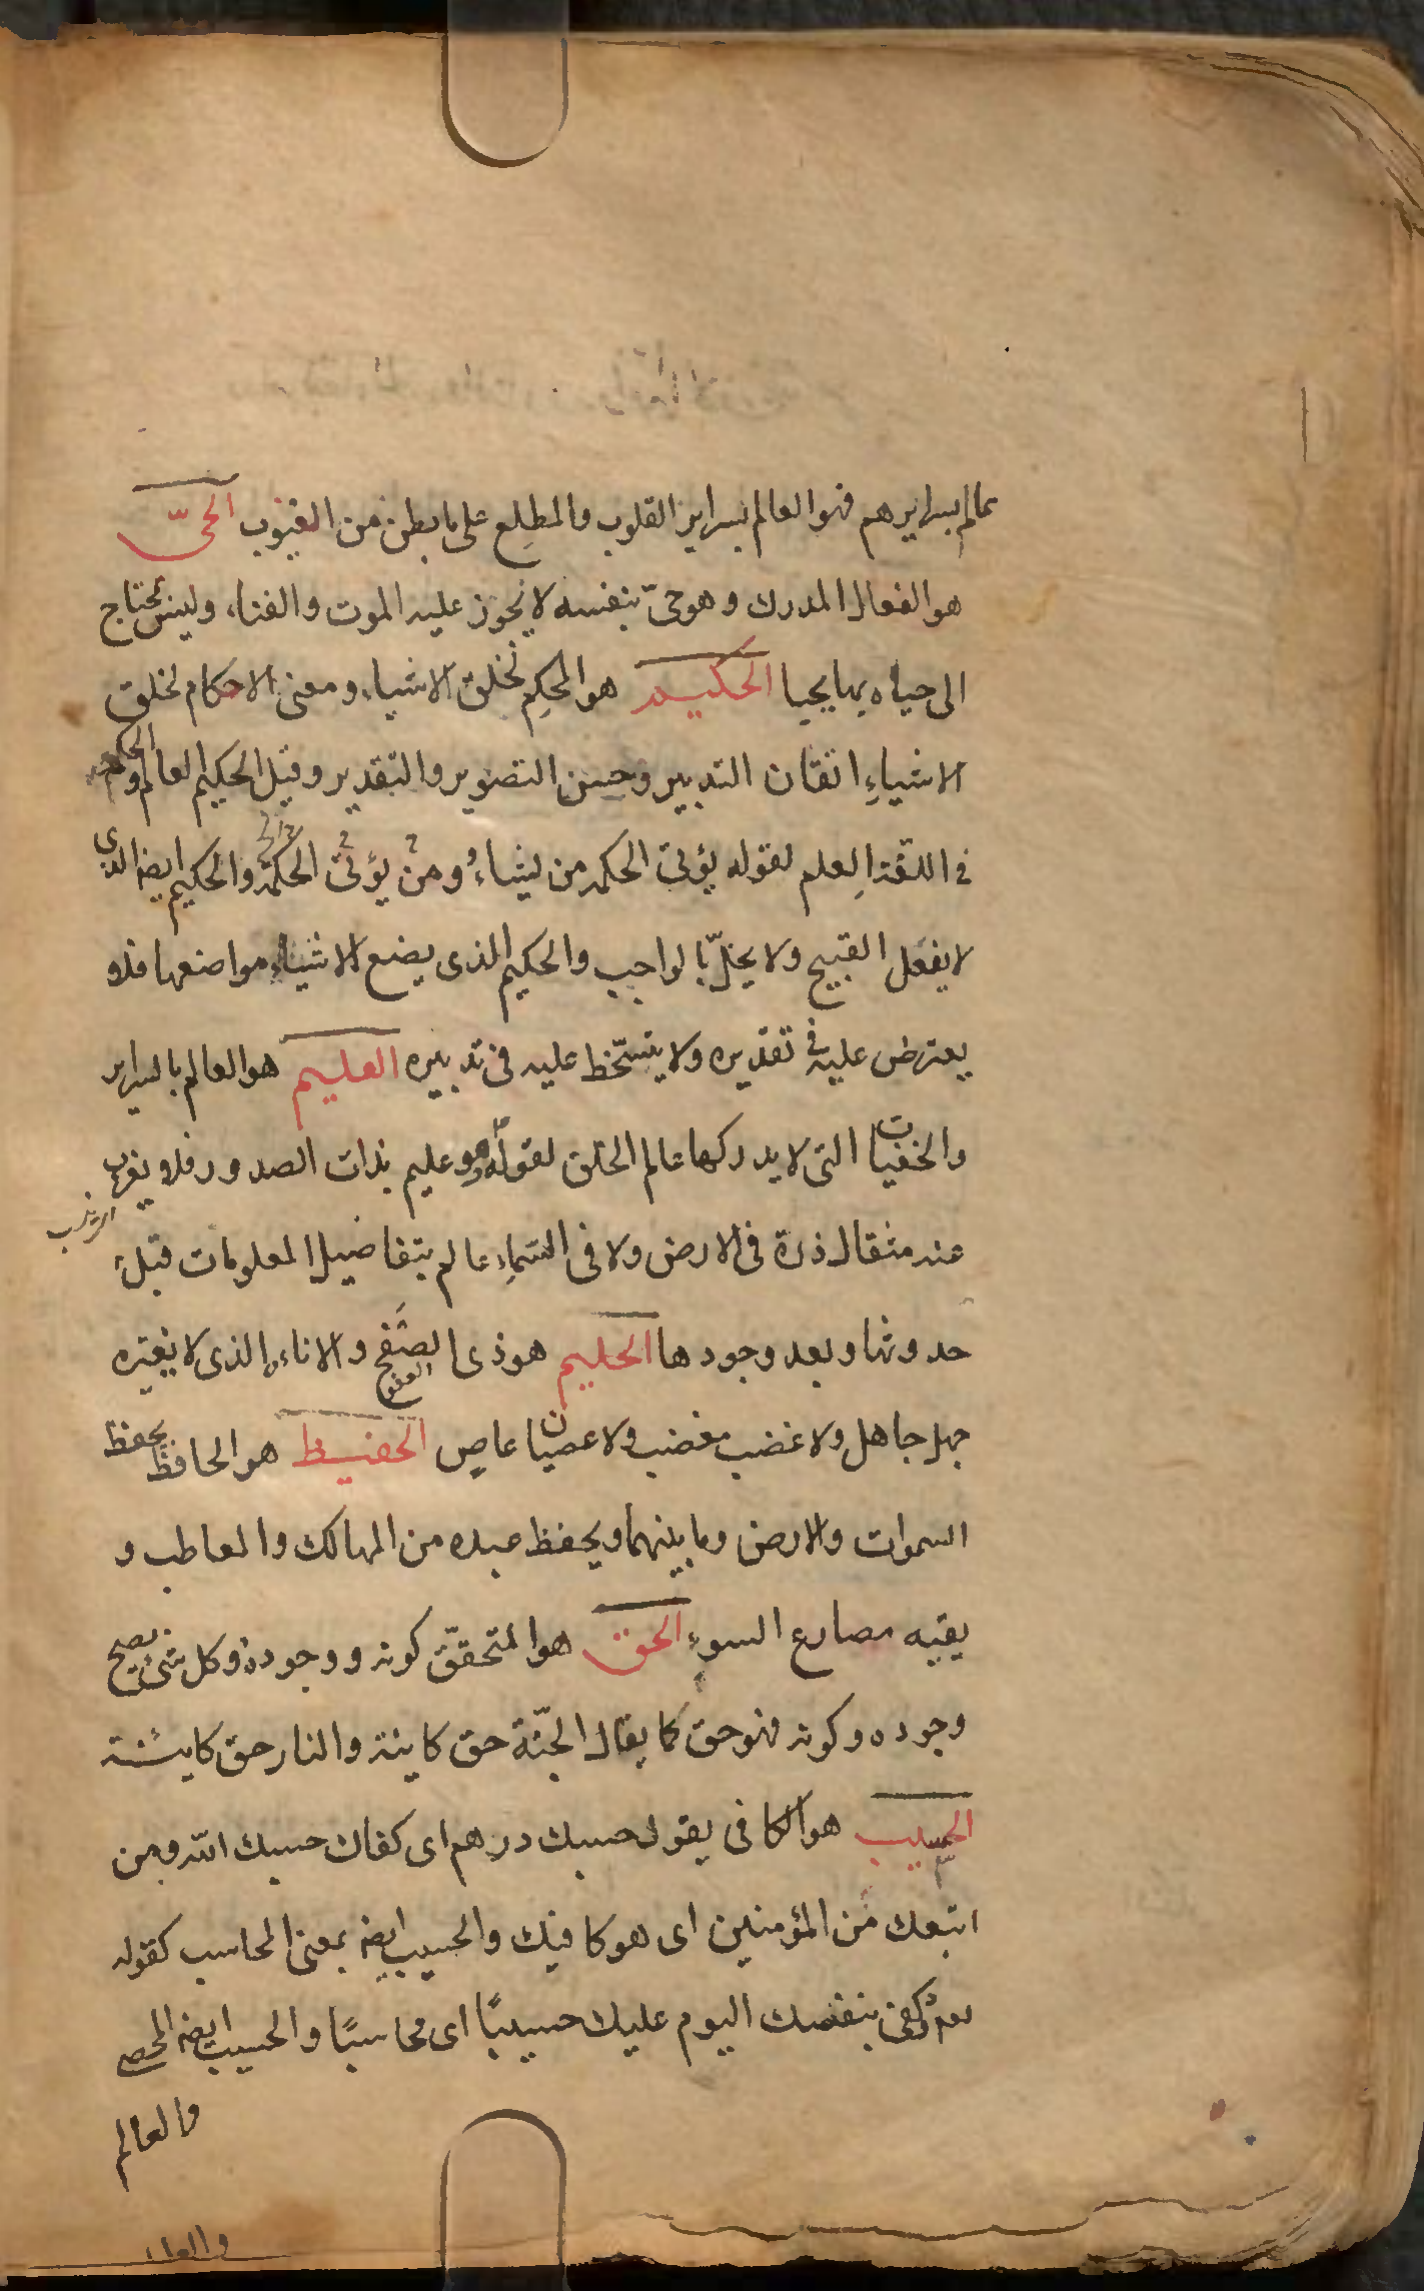 عالم بسرايرهم فهو العالم بسراير القلوب والمطلع على ما بطن من الغيوب الحىّ
هو الفعال المدرك وهو حىّ بنفسه لا يجوز عليه الموت والفناء وليس يحتاج
الى حياة بها يحيا الحكيم هو المحكم لخلق الاشياء ومعنى الاحكام لخلق
الاشياءِ اتقان التدبير وحسن التصوير والتقدير وقيل الحكيم العالم والحكم
فى اللغة العلم لقوله يؤتى الحكمة من يشاءُ ومن يؤتى الحكمة والحكيم ايضا الذى
لا يفعل القبيح ولا يخلّ بالواجب والحكيم الذى يضع الاشياء مواضعها فلا
يعترض عليه فى تقديره ولا يتسخّط عليه فى تدبيره العليم هو العالم بالسراير
والخفيات التى لا يدركها عالم الخلق لقوله وهو عليم بذات الصدور فلا يعزب
عنه مثقال ذرة فى الارض ولا فى السّماءِ عالم بتفاصيل المعلومات قبل
حدوثها وبعد وجودها الحليم هو ذى الصَّفح والاناءة الذى لا يغيّره
العفو
جهل جاهل ولا غضب مغضب ولا عصيان عاصٍ الحفيظ هو الحافظ يحفظ
السموات والارض وما بينهما ويحفظ عبده من المهالك والمعاطب و
يقيه مصارع السوءِ الحق هو المتحقّق كونه ووجوده وكل شئ يصح
وجوده وكونه فهو حق كما يقال الجنّة حق كاينة والنار حق كاينة
الحسيب هو الكافى يقول حسبك درهم اى كفاك حسبك اللّه ومن
اتبعك من المؤمنين اى هو كافيك والحسيب ايضا بمعنى المحاسب كقوله
كفى بنفسك اليوم عليك حسيبًا اى محاسبًا والحسيب ايضا المحصى
والعالم
والعا